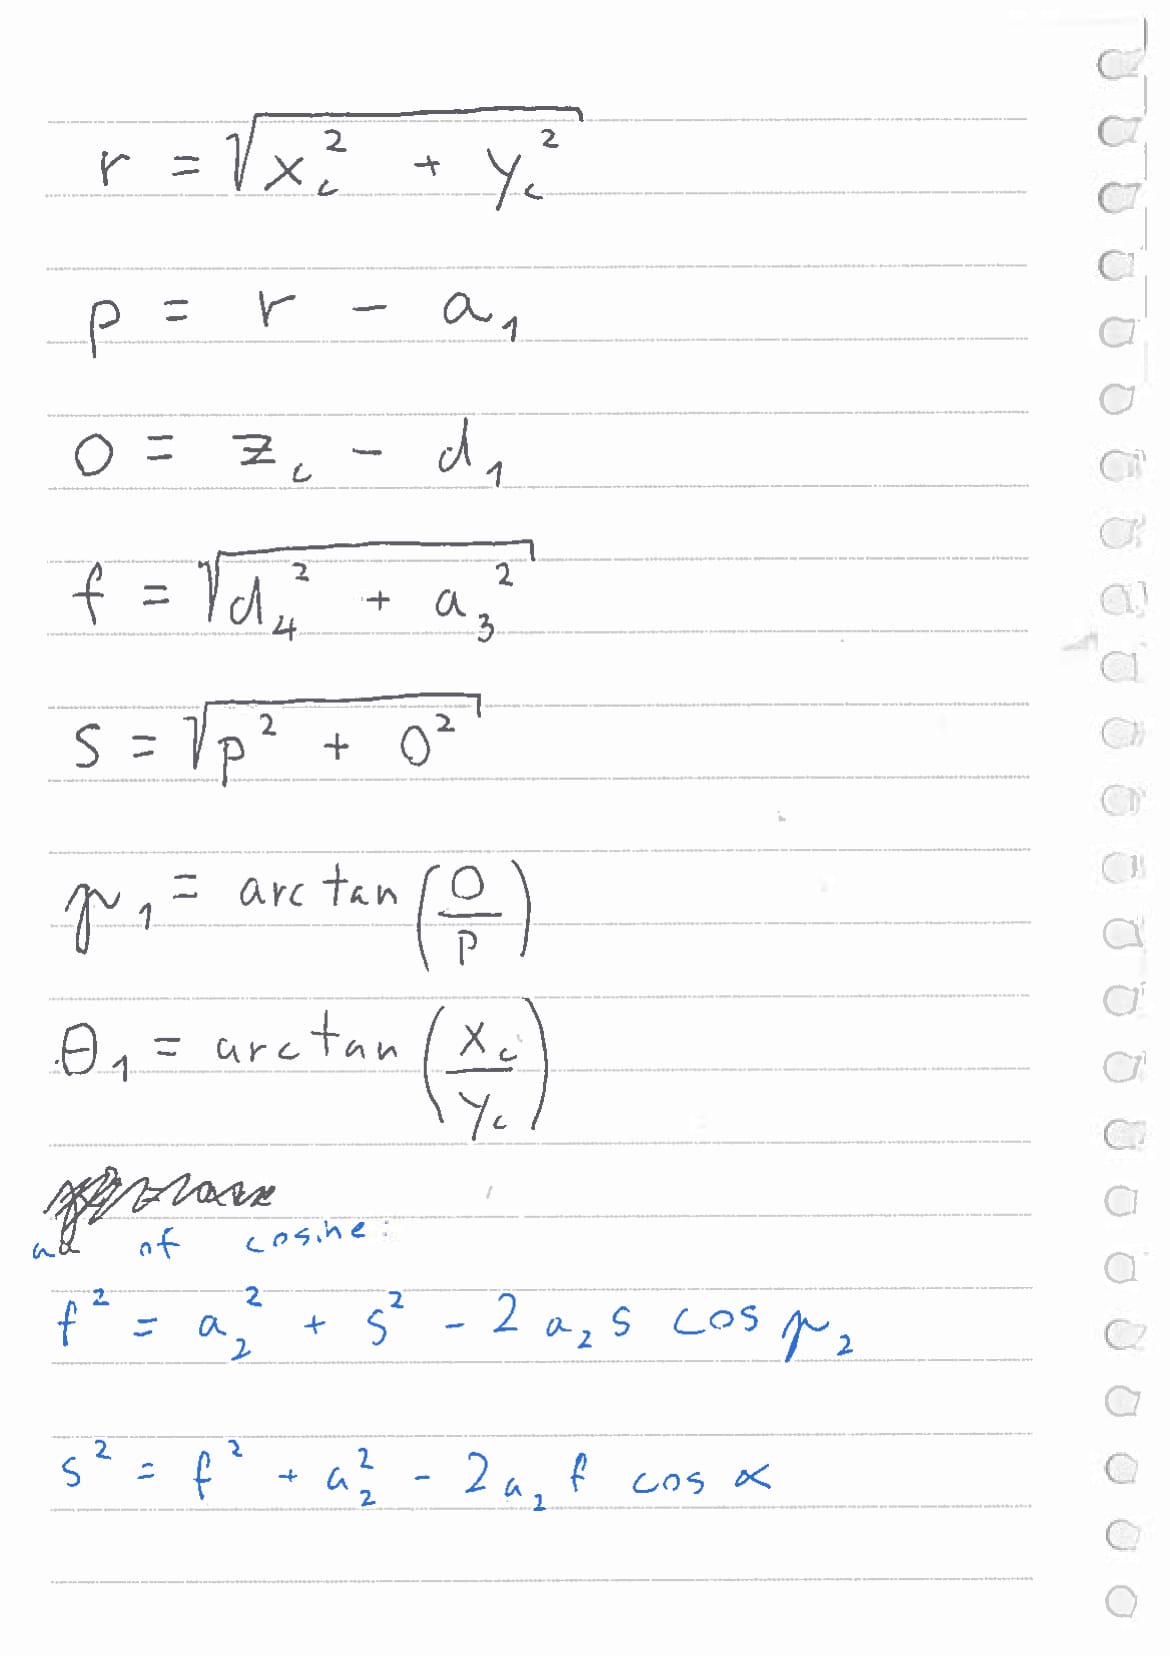 r = √(x_c² + y_c²)
p = r - a₁
O = z_c - d₁
f = √(d₄² + a₃²)
S = √(p² + O²)
µ₁ = arctan(O/p)
θ₁ = arctan(x_c/y_c)
of cosine:
f² = a₂² + s² - 2 a₂ s cos µ₂
s² = f² + a₂² - 2 a₂ f cos α